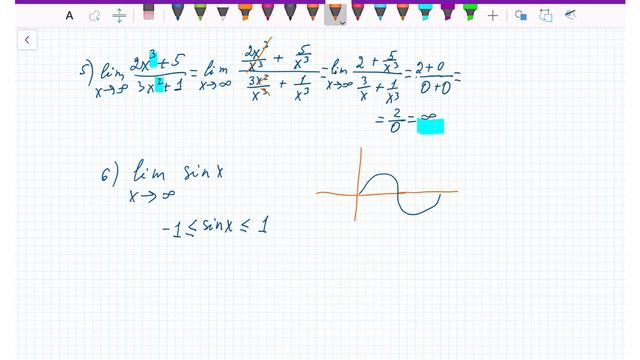 A
5) lim x→∞ (2x³+5)/(3x²+1) = lim x→∞ (2x³/x³ + 5/x³)/(3x²/x³ + 1/x³) = lim x→∞ (2 + 5/x³)/(3/x + 1/x³) = (2+0)/(0+0) =
= 2/0 = ∞
6) lim x→∞ sinx
-1 ≤ sinx ≤ 1